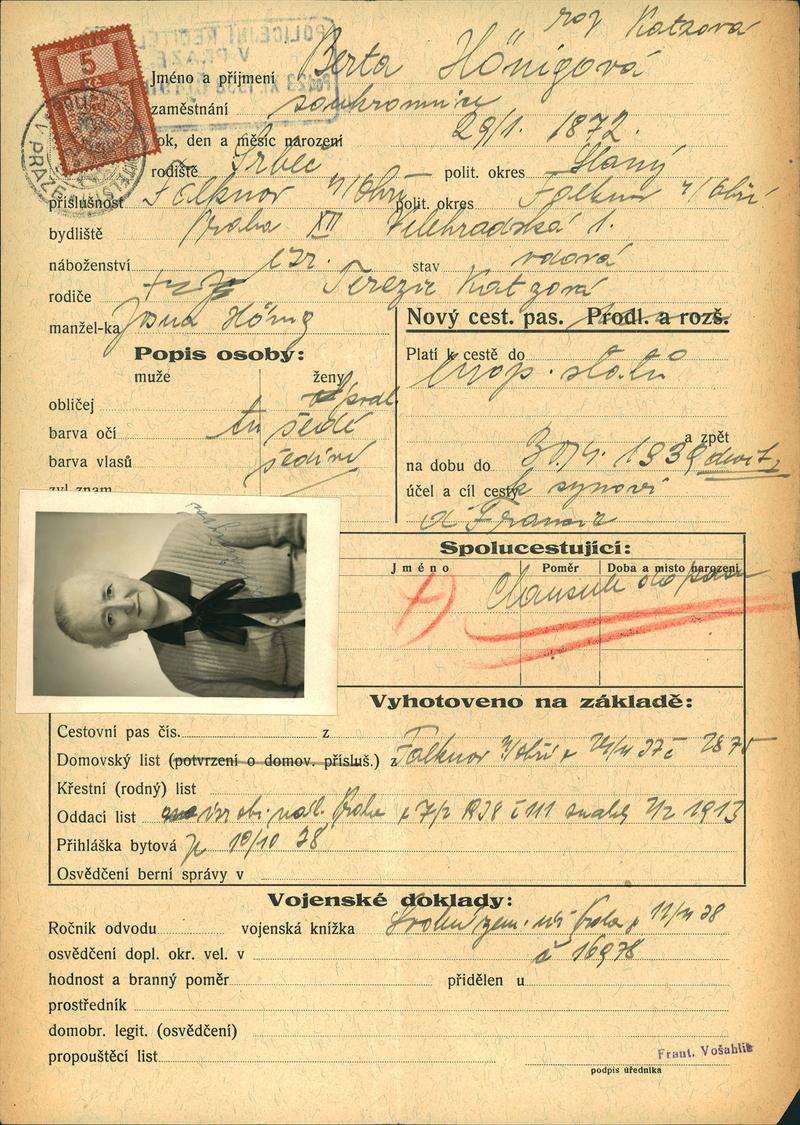 roz Katzova
KOLEK
5
POLICEJNÍ ŘEDITEL
V PRAZE
V PRAZE
Jméno a příjmení Berta Hönigová
zaměstnání soukromnice
rok, den a měsíc narození 29/1. 1872.
rodiště Srbeč polit. okres Slaný
příslušnost Falknov n/Ohří polit. okres Falknov n/Ohří
bydliště Praha XII Velehradská 1.
náboženství izr. stav vdova
rodiče Terezie Katzová
manžel-ka Hönig
Nový cest. pas. Prodl. a rozš.
Popis osoby:
muže ženy
obličej
barva očí šedé
barva vlasů šediné
zvl. znam.
Platí k cestě do evrop. států
a zpět
na dobu do 30/4. 1939
účel a cíl cesty k synovi
d'Francie
Spolucestující:
Jméno Poměr Doba a místo narození
Clausule do pasu
Vyhotoveno na základě:
Cestovní pas čís. z
Domovský list (potvrzení o domov. přísluš.) z Falknov n/Ohří 37 č 2875
Křestní (rodný) list
Oddací list Praha 7/2 1938 č 111 1913
Přihláška bytová 10/10 38
Osvědčení berní správy v
Vojenské doklady:
Ročník odvodu vojenská knížka
osvědčení dopl. okr. vel. v č 16978
hodnost a branný poměr přidělen u
prostředník
domobr. legit. (osvědčení)
propouštěcí list
Frant. Vošahlík
podpis úředníka